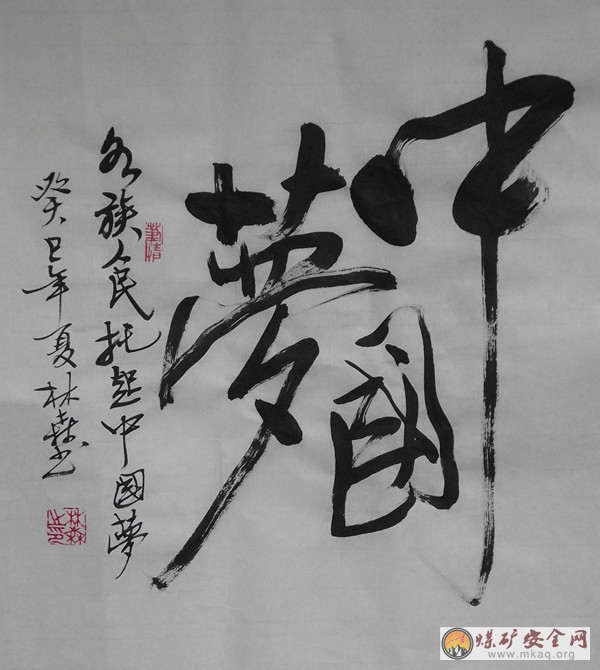 中國
夢
各族人民托起中國夢
癸巳年夏林森书
林森之印
煤矿安全网
www.mkaq.org